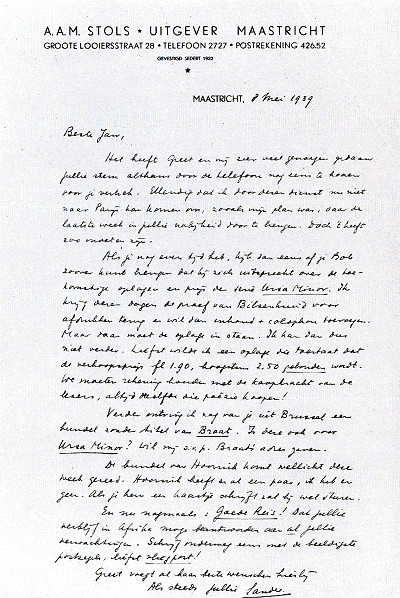 A.A.M. STOLS * UITGEVER MAASTRICHT
GROOTE LOOIERSSTRAAT 28 * TELEFOON 2727 * POSTREKENING 426.52
GEVESTIGD SEDERT 1922
*
MAASTRICHT, 8 Mei 1939
Beste Jan,
Het heeft Greet en mij zeer veel genoegen gedaan
jullie stem althans door de telefoon nog eens te hooren
voor je vertrek. Ellendig dat ik door deren dienst nu niet
naar Parijs kan komen om, zooals mijn plan was, daar de
laatste week in jullie nabijheid door te brengen. Doch 't heeft
zoo moeten zijn.
Als je nog even tijd hebt, kijk dan eens of je Bob
zoover kunt brengen dat hij zich uitspreekt over de toe-
komstige oplagen en prijs der serie Ursa Minor. Ik
krijg dezer dagen de proef van voor
afdrukken terug en wil dan inhoud + colophon toevoegen.
Maar daar moet de oplage in staan. Ik kan dan dus
niet verder. Liefst wilde ik een oplage die toestaat dat
de verkoopsprijs fl 1.90, hoogstens 2.50 gebonden wordt.
We moeten rekening houden met de koopkracht van de
lezers, altijd dezelfde die poëzie koopen!
Verder ontving ik nog van je uit Brussel een
bundel zonder titel van Braat. Is deze ook voor
Ursa Minor? Wil mij s.v.p. Braat's adres geven.
De bundel van Hoornik komt wellicht deze
week gereed. Hoornik heeft er al een paar, ik heb er
geen. Als je hem een kaartje schrijft zal hij wel sturen.
En nu nogmaals: Goede Reis! Dat jullie
verblijf in Afrika moge beantwoorden aan al jullie
verwachtingen. Schrijf ons nog eens met de beeldigste
postzegels, liefst vliegpost!
Greet voegt al haar beste wenschen hierbij
Als steeds jullie Sander.